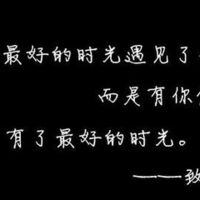 最好的时光遇见了
而是有你
有了最好的时光。
——致